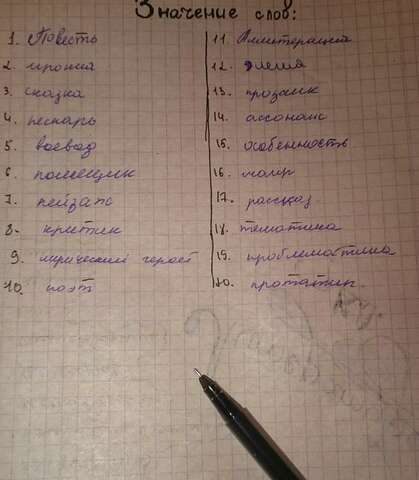 Значение слов:
1. Повесть
2. ирония
3. сказка
4. пескарь
5. воевод
6. помещик
7. пейзаж
8. критик
9. лирический герой
10. поэт
11. Аллитерация
12. элегия
13. прозаик
14. ассонанс
15. особенность
16. жанр
17. рассказ
18. тематика
19. проблематика
20.